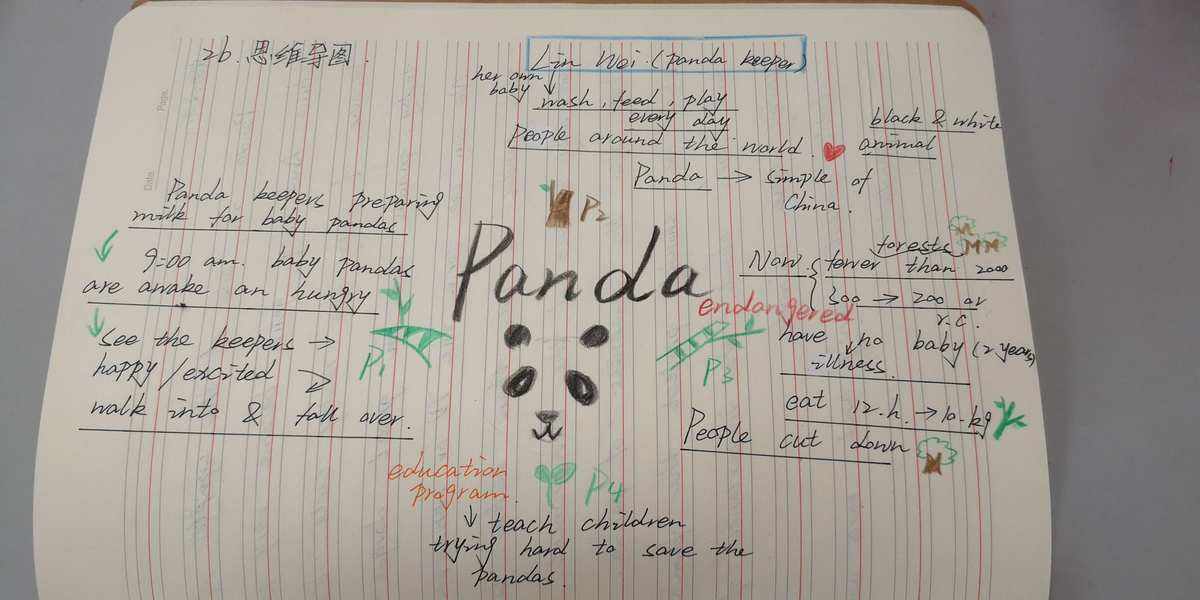 2b. 思维导图.
Lin Wei. (panda keeper)
her own
baby
wash, feed, play
every day
People around the world.
black & white
animal
Panda → simple of
China.
P2
Page.
Date.
Panda keepers preparing
milk for baby pandas
9:00 am. baby pandas
are awake an hungry
see the keepers →
happy / excited
walk into & fall over.
P1
Panda
endangered
forests
Now. { fewer than 2000
300 → 200 or
r.c.
have no baby (2 years)
illness.
P3
eat 12.h. → 10.kg
People cut down
education
program.
P4
teach children
trying hard to save the
pandas.